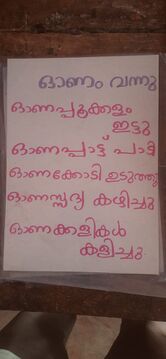 ഓണം വന്നു
ഓണപ്പൂക്കളം
ഇട്ടു
ഓണപ്പാട്ട് പാടി
ഓണക്കോടി ഉടുത്തു
ഓണസ്സദ്യ കഴിച്ചു
ഓണക്കളികൾ
കളിച്ചു